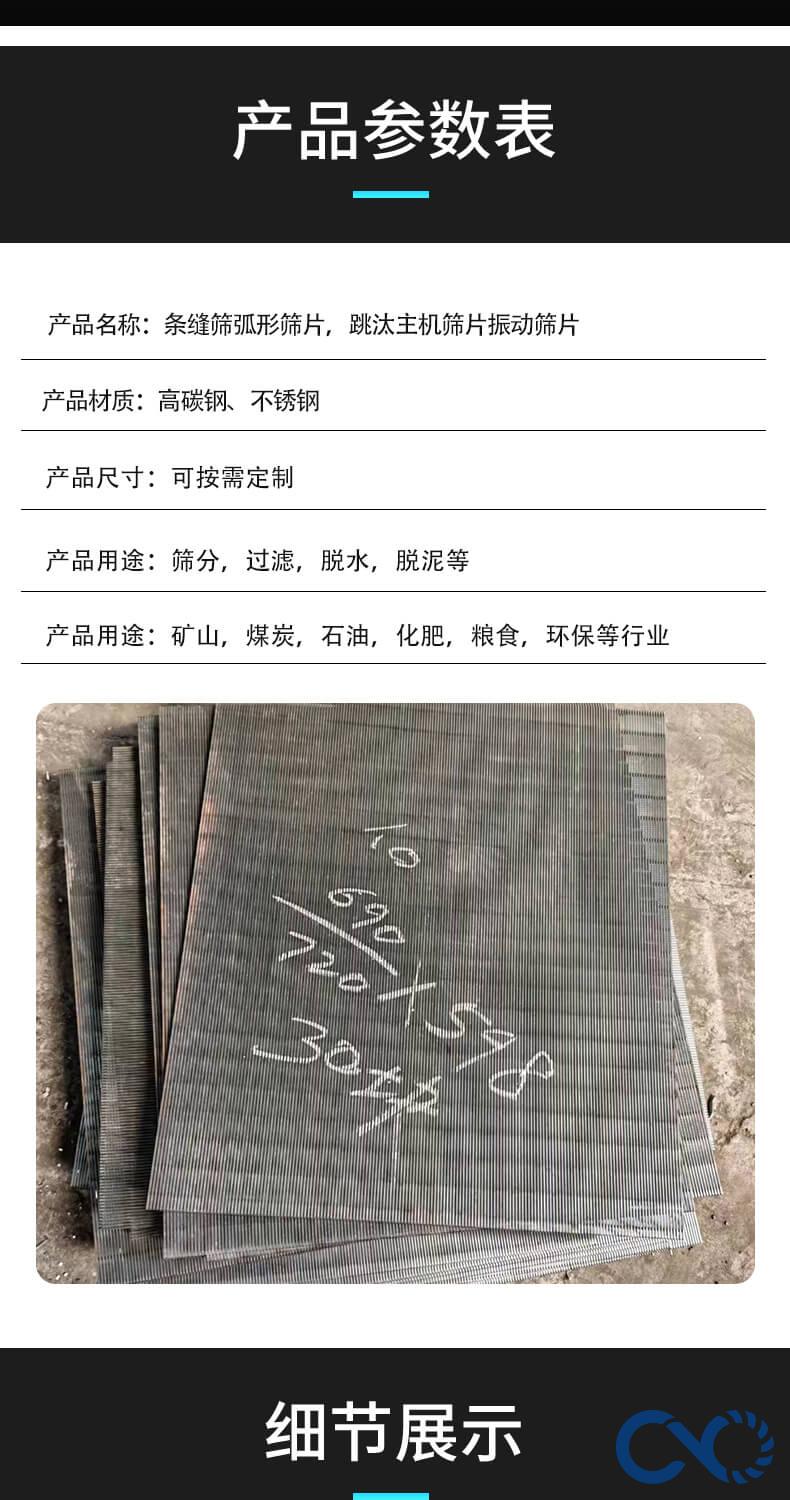 产品参数表
产品名称：条缝筛弧形筛片，跳汰主机筛片振动筛片
产品材质：高碳钢、不锈钢
产品尺寸：可按需定制
产品用途：筛分，过滤，脱水，脱泥等
产品用途：矿山，煤炭，石油，化肥，粮食，环保等行业
10
690
720 X 598
30块
细节展示